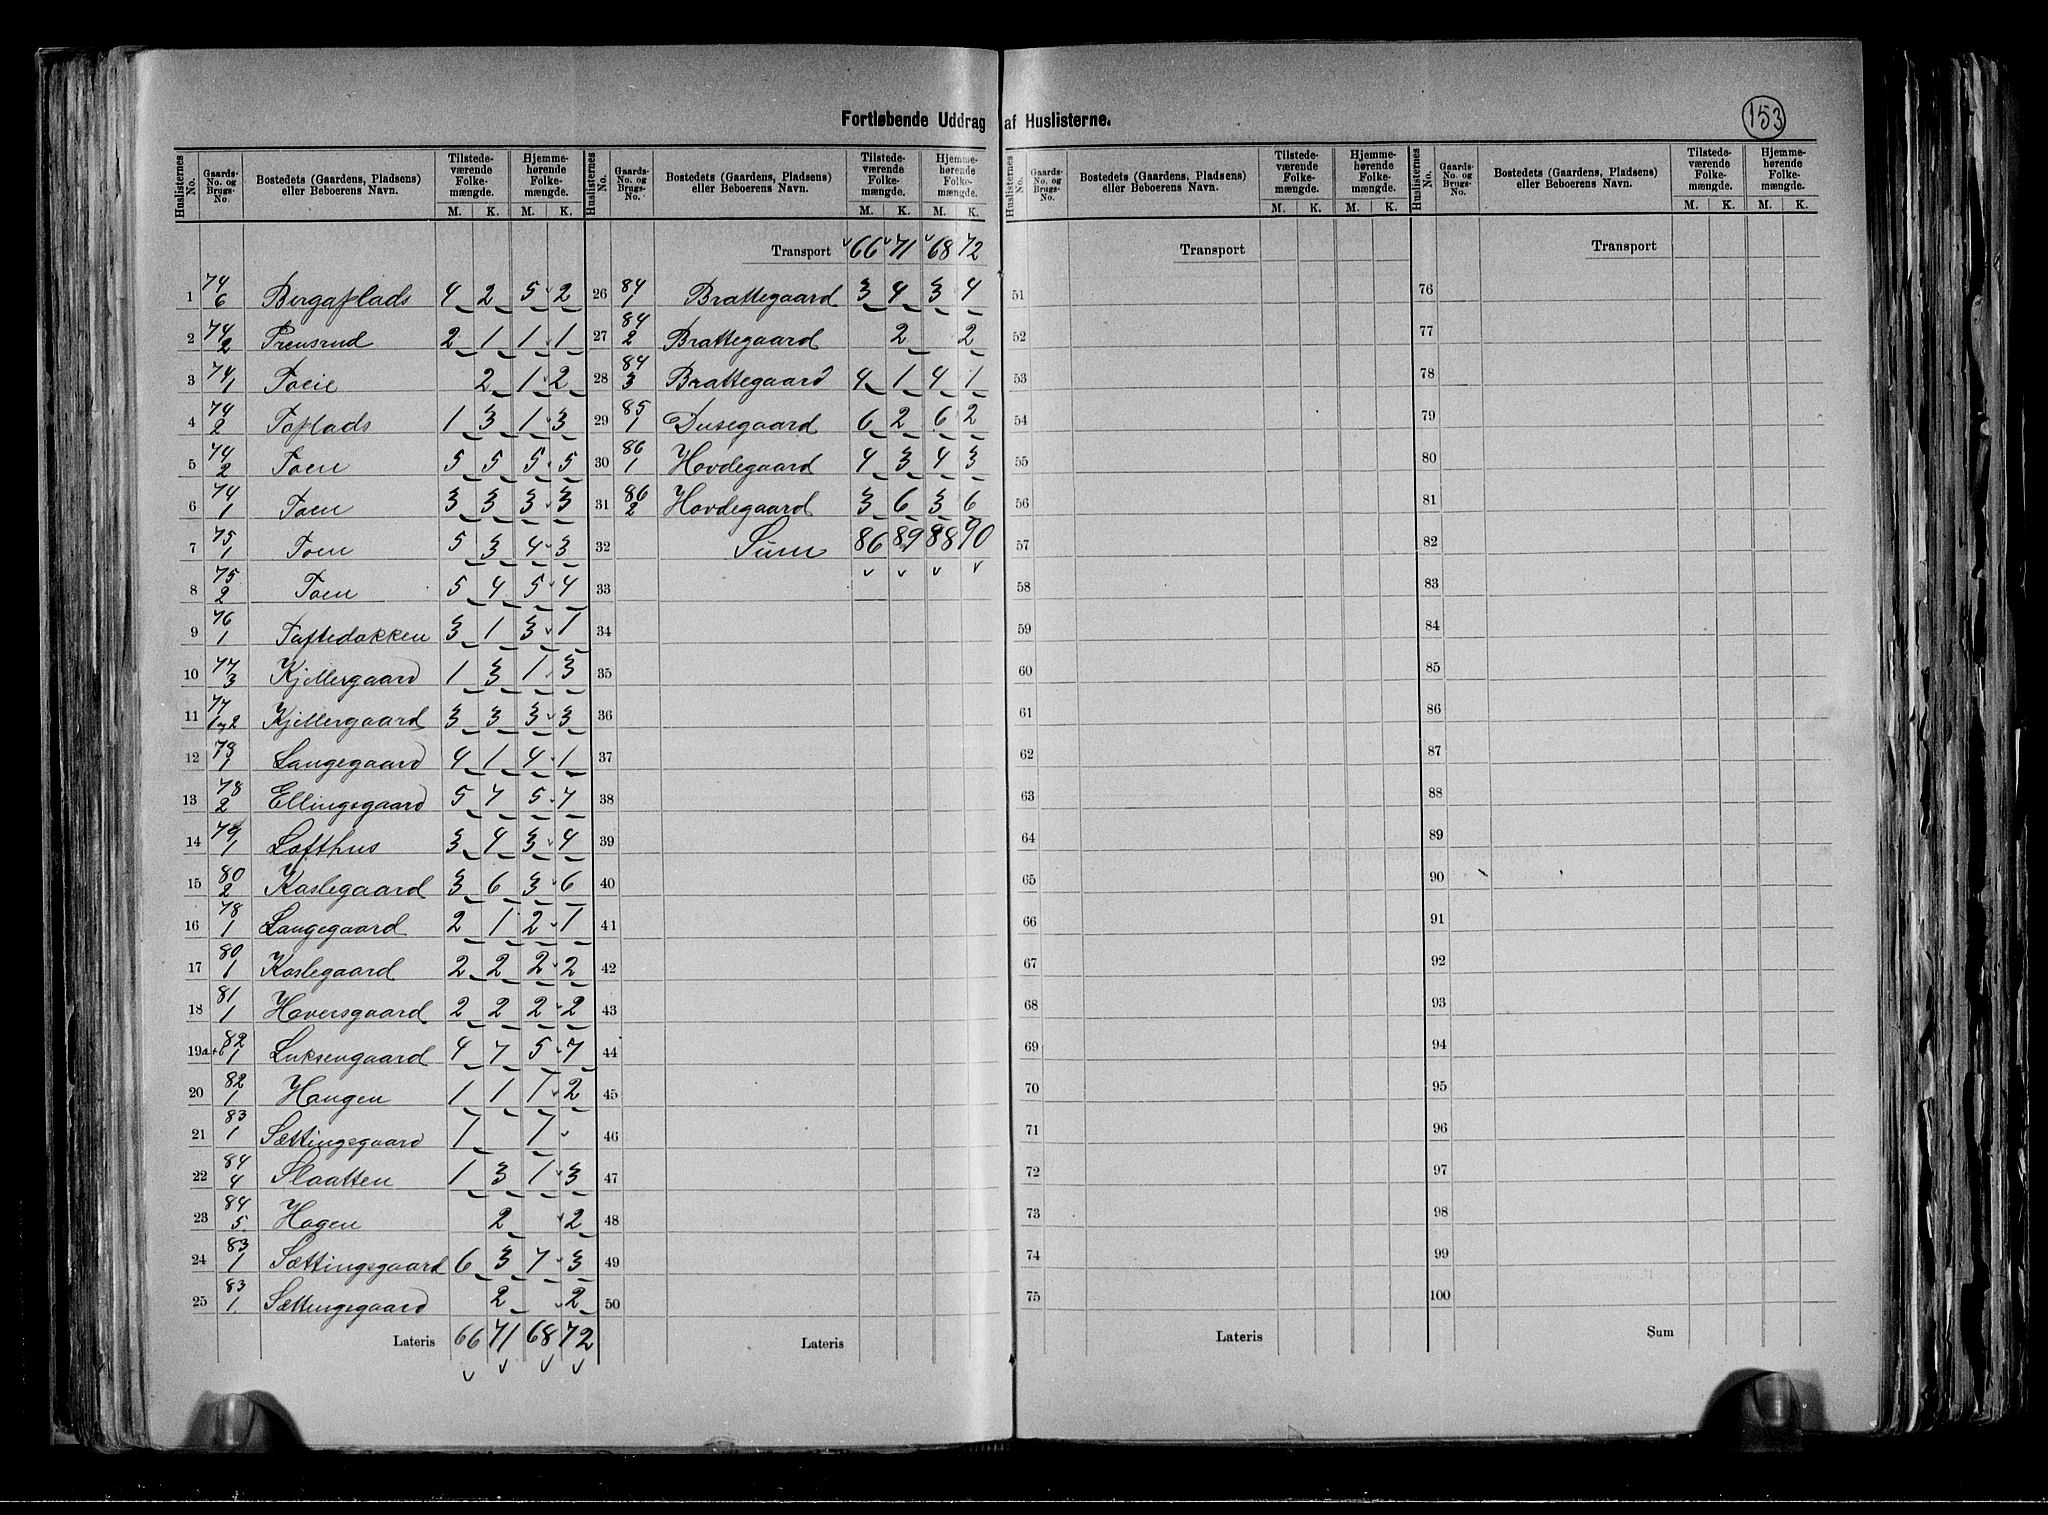 153
Fortløbende Uddrag af Huslisterne.
Huslisternes No. | Gaards-No. og Brugs-No. | Bostedets (Gaardens, Pladsens) eller Beboerens Navn. | Tilstedeværende Folkemængde. M. K. | Hjemmehørende Folkemængde. M. K.
1 74/6 Bergaplads 4 2 5 2
2 74/2 Prensrud 2 1 1 1
3 74/1 Toeie 2 1 2
4 74/2 Toplads 1 3 1 3
5 74/2 Toen 5 5 5 5
6 74/1 Toen 3 3 3 3
7 75/1 Toen 5 3 4 3
8 75/2 Toen 5 4 5 4
9 76/1 Toftedokken 3 1 3 1
10 77/3 Kjellergaard 1 3 1 3
11 77/1 og 2 Kjellergaard 3 3 3 3
12 78/1 Langegaard 4 1 4 1
13 78/2 Ellingsgaard 5 7 5 7
14 79/1 Lofthus 3 4 3 4
15 80/2 Kaslegaard 3 6 3 6
16 78/1 Langegaard 2 1 2 1
17 80/1 Kaslegaard 2 2 2 2
18 81/1 Hoversgaard 2 2 2 2
19 a+b 82/1 Luksengaard 4 7 5 7
20 82/1 Haugen 1 1 1 2
21 83/1 Sættingsgaard 1 1
22 84/4 Slaatten 1 3 1 3
23 84/5 Hagen 2 2
24 83/1 Sættingsgaard 6 3 7 3
25 83/1 Sættingsgaard 2 2
Lateris 66 71 68 72
Huslisternes No. | Gaards-No. og Brugs-No. | Bostedets (Gaardens, Pladsens) eller Beboerens Navn. | Tilstedeværende Folkemængde. M. K. | Hjemmehørende Folkemængde. M. K.
Transport 66 71 68 72
26 84/1 Brattegaard 3 4 3 4
27 84/2 Brattegaard 2 2
28 84/3 Brattegaard 4 1 4 1
29 85/1 Dusegaard 6 2 6 2
30 86/1 Hovdegaard 4 3 4 3
31 86/2 Hovdegaard 3 6 3 6
32 Sum 86 89 88 90
33
34
35
36
37
38
39
40
41
42
43
44
45
46
47
48
49
50
Lateris
Huslisternes No. | Gaards-No. og Brugs-No. | Bostedets (Gaardens, Pladsens) eller Beboerens Navn. | Tilstedeværende Folkemængde. M. K. | Hjemmehørende Folkemængde. M. K.
Transport
51
52
53
54
55
56
57
58
59
60
61
62
63
64
65
66
67
68
69
70
71
72
73
74
75
Lateris
Huslisternes No. | Gaards-No. og Brugs-No. | Bostedets (Gaardens, Pladsens) eller Beboerens Navn. | Tilstedeværende Folkemængde. M. K. | Hjemmehørende Folkemængde. M. K.
Transport
76
77
78
79
80
81
82
83
84
85
86
87
88
89
90
91
92
93
94
95
96
97
98
99
100
Sum